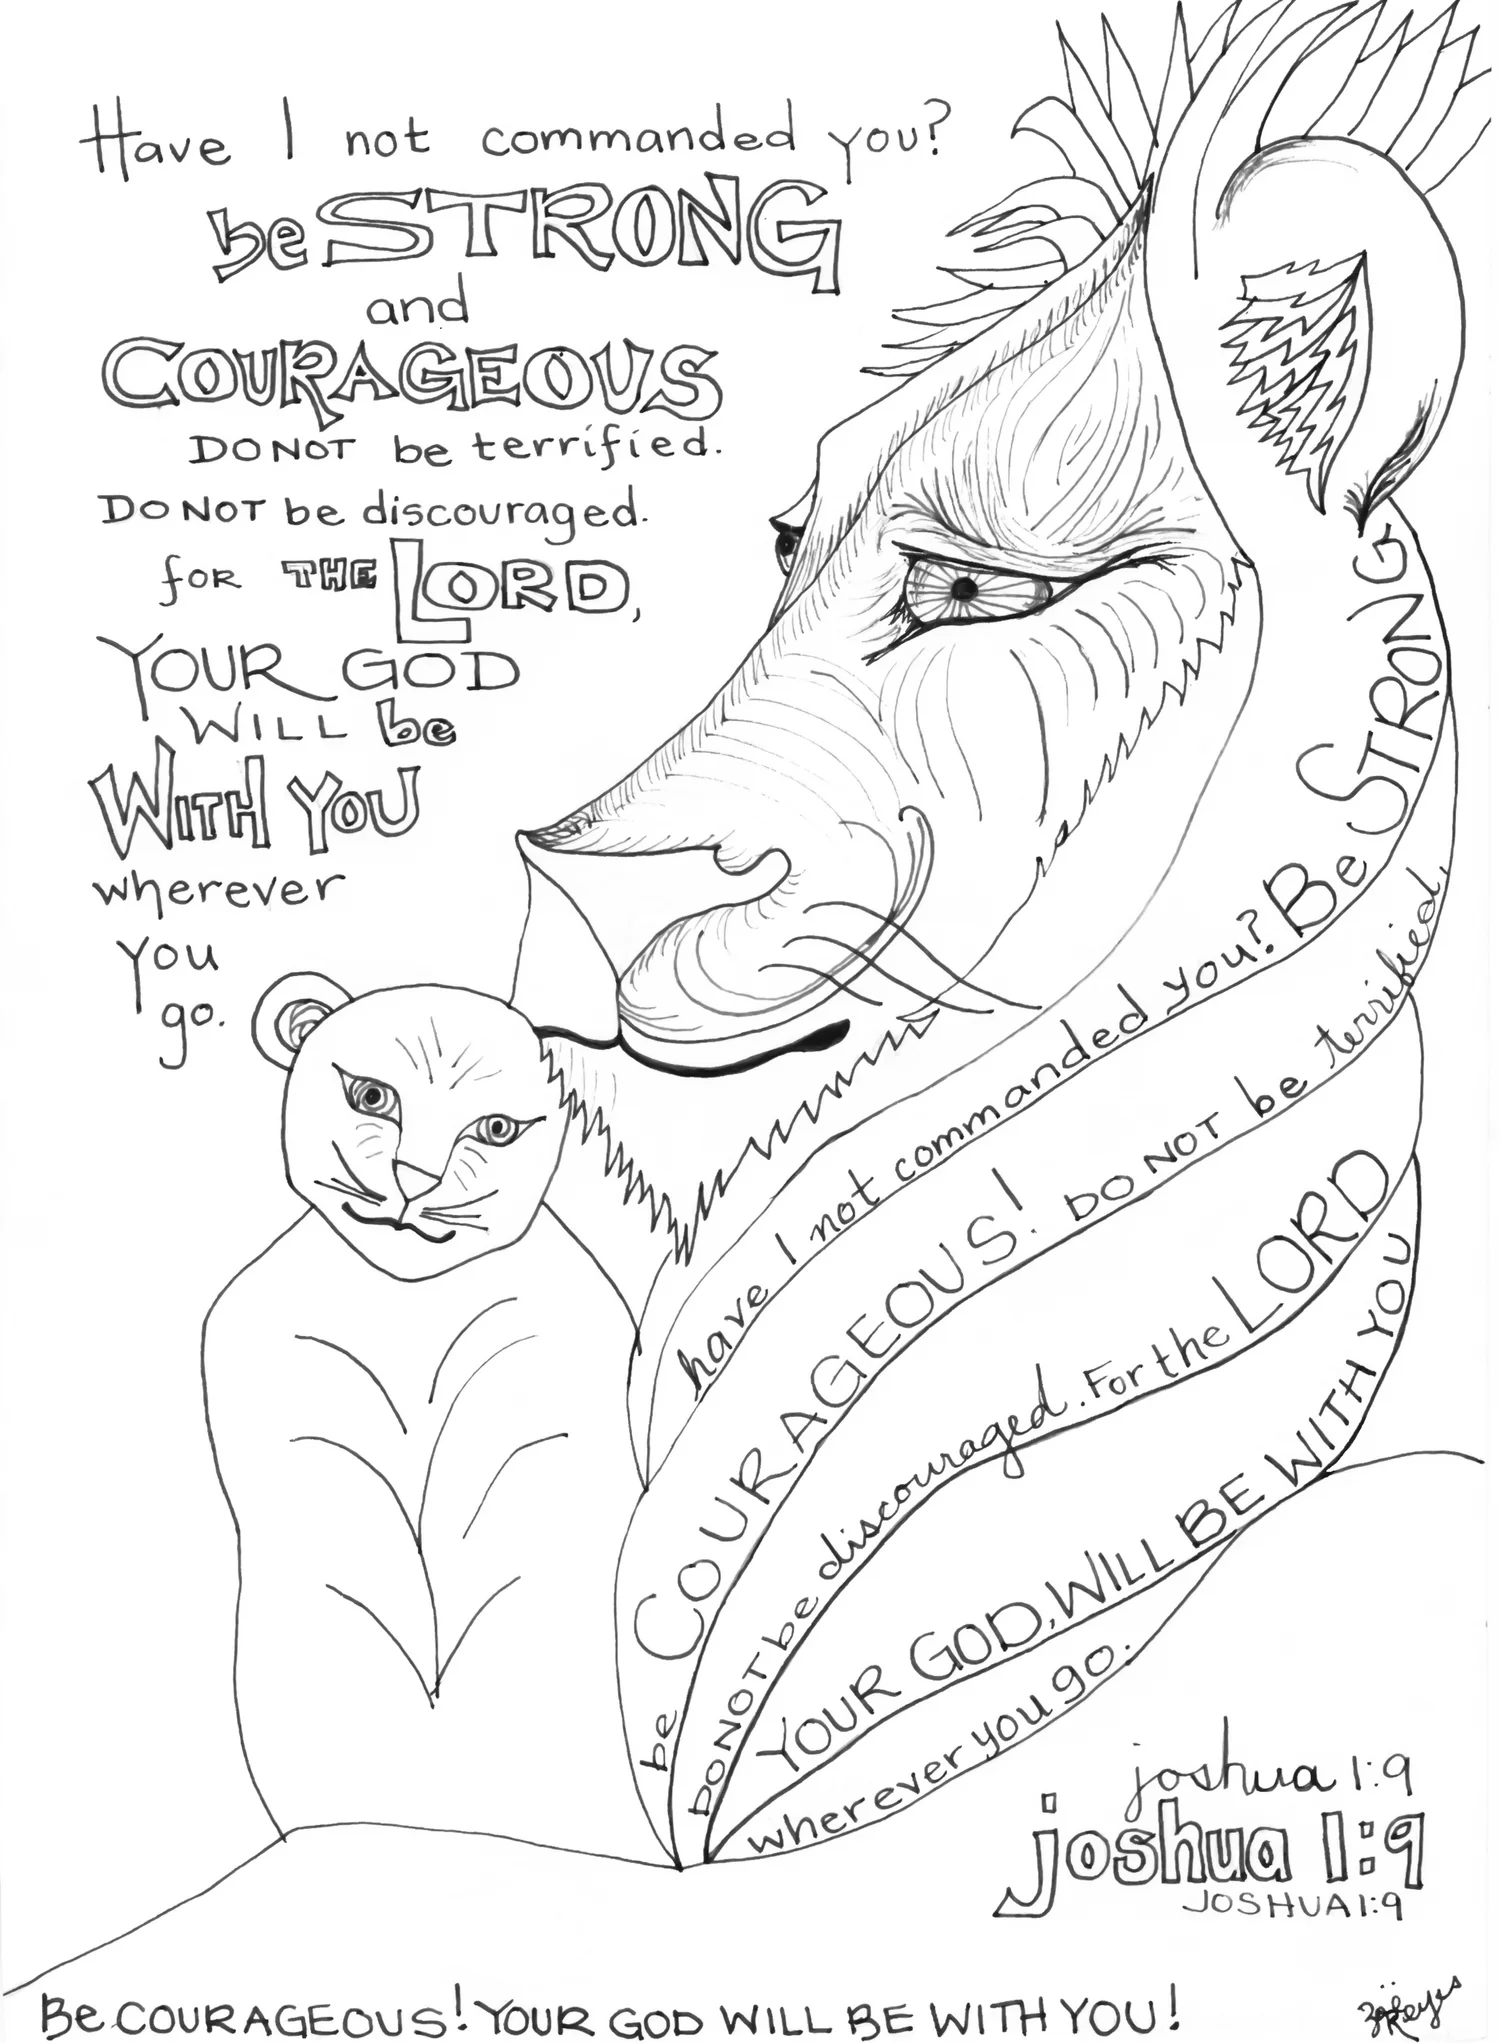 Have I not commanded you?
be STRONG
and
COURAGEOUS
DO NOT be terrified.
DO NOT be discouraged.
for THE LORD,
YOUR GOD
WILL be
WITH YOU
wherever
you
go.
have I not commanded you? Be STRONG
be COURAGEOUS! DO NOT be terrified,
DO NOT be discouraged. For the LORD
YOUR GOD, WILL BE WITH YOU
wherever you go.
joshua 1:9
joshua 1:9
JOSHUA 1:9
Be COURAGEOUS! YOUR GOD WILL BE WITH YOU!